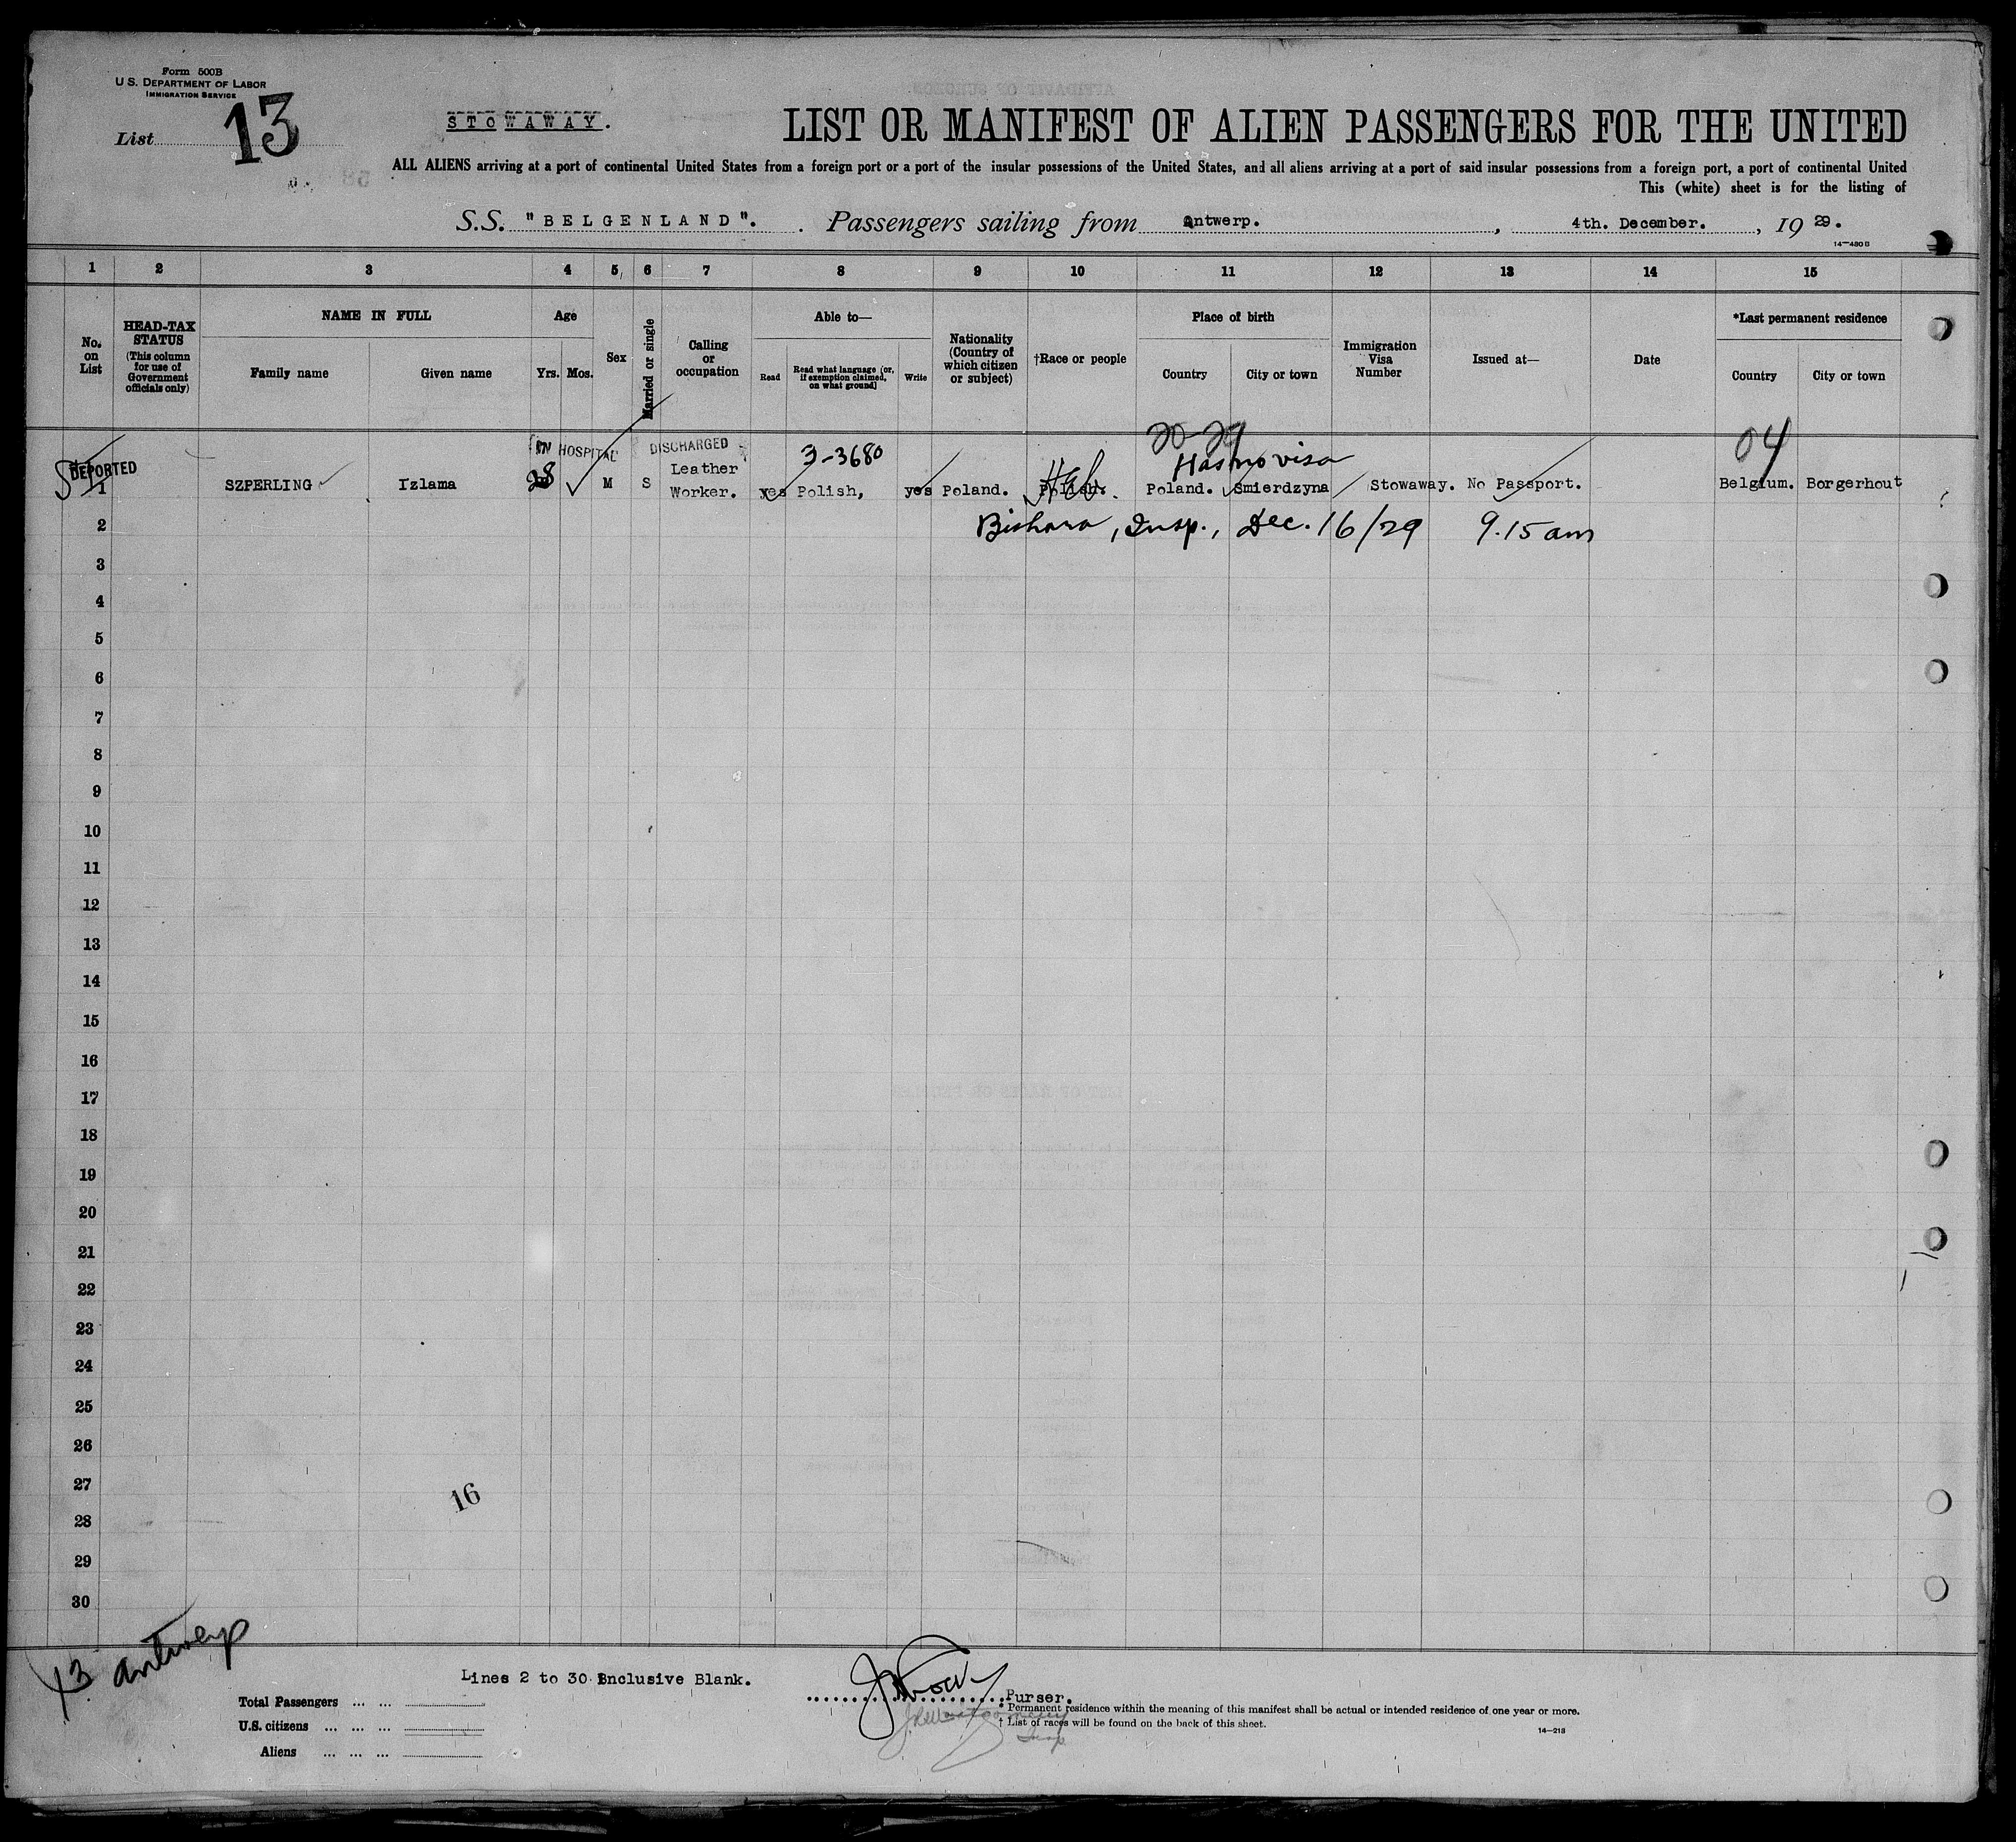 Form 500B
U. S. DEPARTMENT OF LABOR
IMMIGRATION SERVICE
List 13
STOWAWAY.
LIST OR MANIFEST OF ALIEN PASSENGERS FOR THE UNITED
ALL ALIENS arriving at a port of continental United States from a foreign port or a port of the insular possessions of the United States, and all aliens arriving at a port of said insular possessions from a foreign port, a port of continental United
This (white) sheet is for the listing of
S.S. "BELGENLAND". Passengers sailing from Antwerp. , 4th. December. , 19 29.
14—480 B
1 2 3 4 5 6 7 8 9 10 11 12 13 14 15
No. on List
HEAD-TAX STATUS (This column for use of Government officials only)
NAME IN FULL
Family name Given name
Age
Yrs. Mos.
Sex
Married or single
Calling or occupation
Able to—
Read Read what language (or, if exemption claimed, on what ground) Write
Nationality (Country of which citizen or subject)
†Race or people
Place of birth
Country City or town
Immigration Visa Number
Issued at—
Date
*Last permanent residence
Country City or town
20-29 04
IN HOSPITAL DISCHARGED 3-3680 Has no visa
DEPORTED
1 SZPERLING Izlama 28 M S Leather Worker. yes Polish, yes Poland. Polish. Heb. Poland. Smierdzyna Stowaway. No Passport. Belgium. Borgerhout
2 Bishara, Insp., Dec. 16/29 9.15 am
3
4
5
6
7
8
9
10
11
12
13
14
15
16
17
18
19
20
21
22
23
24
25
26
27
28
29
30
16
13 Antwerp
Lines 2 to 30 Inclusive Blank.
Purser.
Total Passengers ... ...
U.S. citizens ... ... ...
Aliens ... ... ...
* Permanent residence within the meaning of this manifest shall be actual or intended residence of one year or more.
† List of races will be found on the back of this sheet.
14—213
Insp